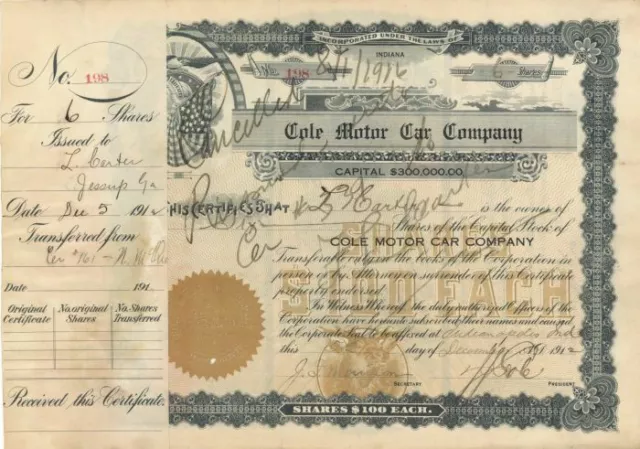 No. 198
For 6 Shares
Issued to
L
Jessup Ga
Date Dec 5 1912
Transferred from
Cer #161 -
Date 191
Original Certificate
No. original Shares
No. Shares Transferred
Received this Certificate
INCORPORATED UNDER THE LAWS OF
INDIANA
No. 198
6 Shares
Cancelled
Cole Motor Car Company
CAPITAL $300,000.00
THIS CERTIFIES THAT L is the owner of
Shares of the Capital Stock of
COLE MOTOR CAR COMPANY
Transferable only on the books of the Corporation in
person or by Attorney on surrender of this Certificate
properly endorsed.
In Witness Whereof, the duly authorized Officers of the
Corporation have hereunto subscribed their names and caused
the Corporate Seal to be affixed at Indianapolis Ind
this day of December A.D. 1912
SECRETARY PRESIDENT
SHARES
$100 EACH
SHARES $100 EACH.